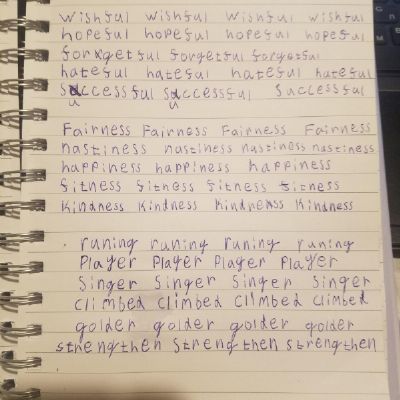 wishful wishful wishful wishful
hopeful hopeful hopeful hopeful
forgetful forgetful forgetful
hateful hateful hateful hateful
successful successful successful
Fairness Fairness Fairness Fairness
nastiness nastiness nastiness nastiness
happiness happiness happiness
fitness fitness fitness fitness
Kindness Kindness Kindness Kindness
runing runing runing runing
Player Player Player Player
Singer Singer Singer Singer
Climbed Climbed Climbed Climbed
golder golder golder golder
strengthen strengthen strengthen